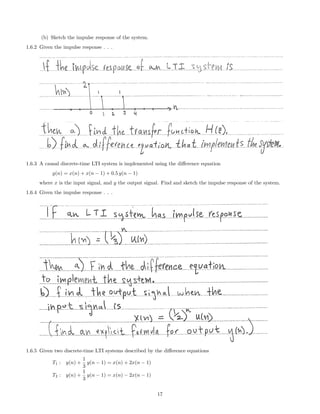 (b) Sketch the impulse response of the system.
1.6.2 Given the impulse response . . .
If the impulse response of an LTI system is
h(n)
2
1
1
0 1 2 3 4
n
then a) find the transfer function H(z).
b) find a difference equation that implements the system.
1.6.3 A causal discrete-time LTI system is implemented using the difference equation
y(n) = x(n) + x(n − 1) + 0.5 y(n − 1)
where x is the input signal, and y the output signal. Find and sketch the impulse response of the system.
1.6.4 Given the impulse response . . .
IF an LTI system has impulse response
h(n) = (1/3)^n u(n)
then a) Find the difference equation
to implement the system.
b) find the output signal when the
input signal is
x(n) = (1/2)^n u(n)
(find an explicit formula for output y(n).)
1.6.5 Given two discrete-time LTI systems described by the difference equations
T₁ : y(n) + 1/3 y(n − 1) = x(n) + 2x(n − 1)
T₂ : y(n) + 1/3 y(n − 1) = x(n) − 2x(n − 1)
17